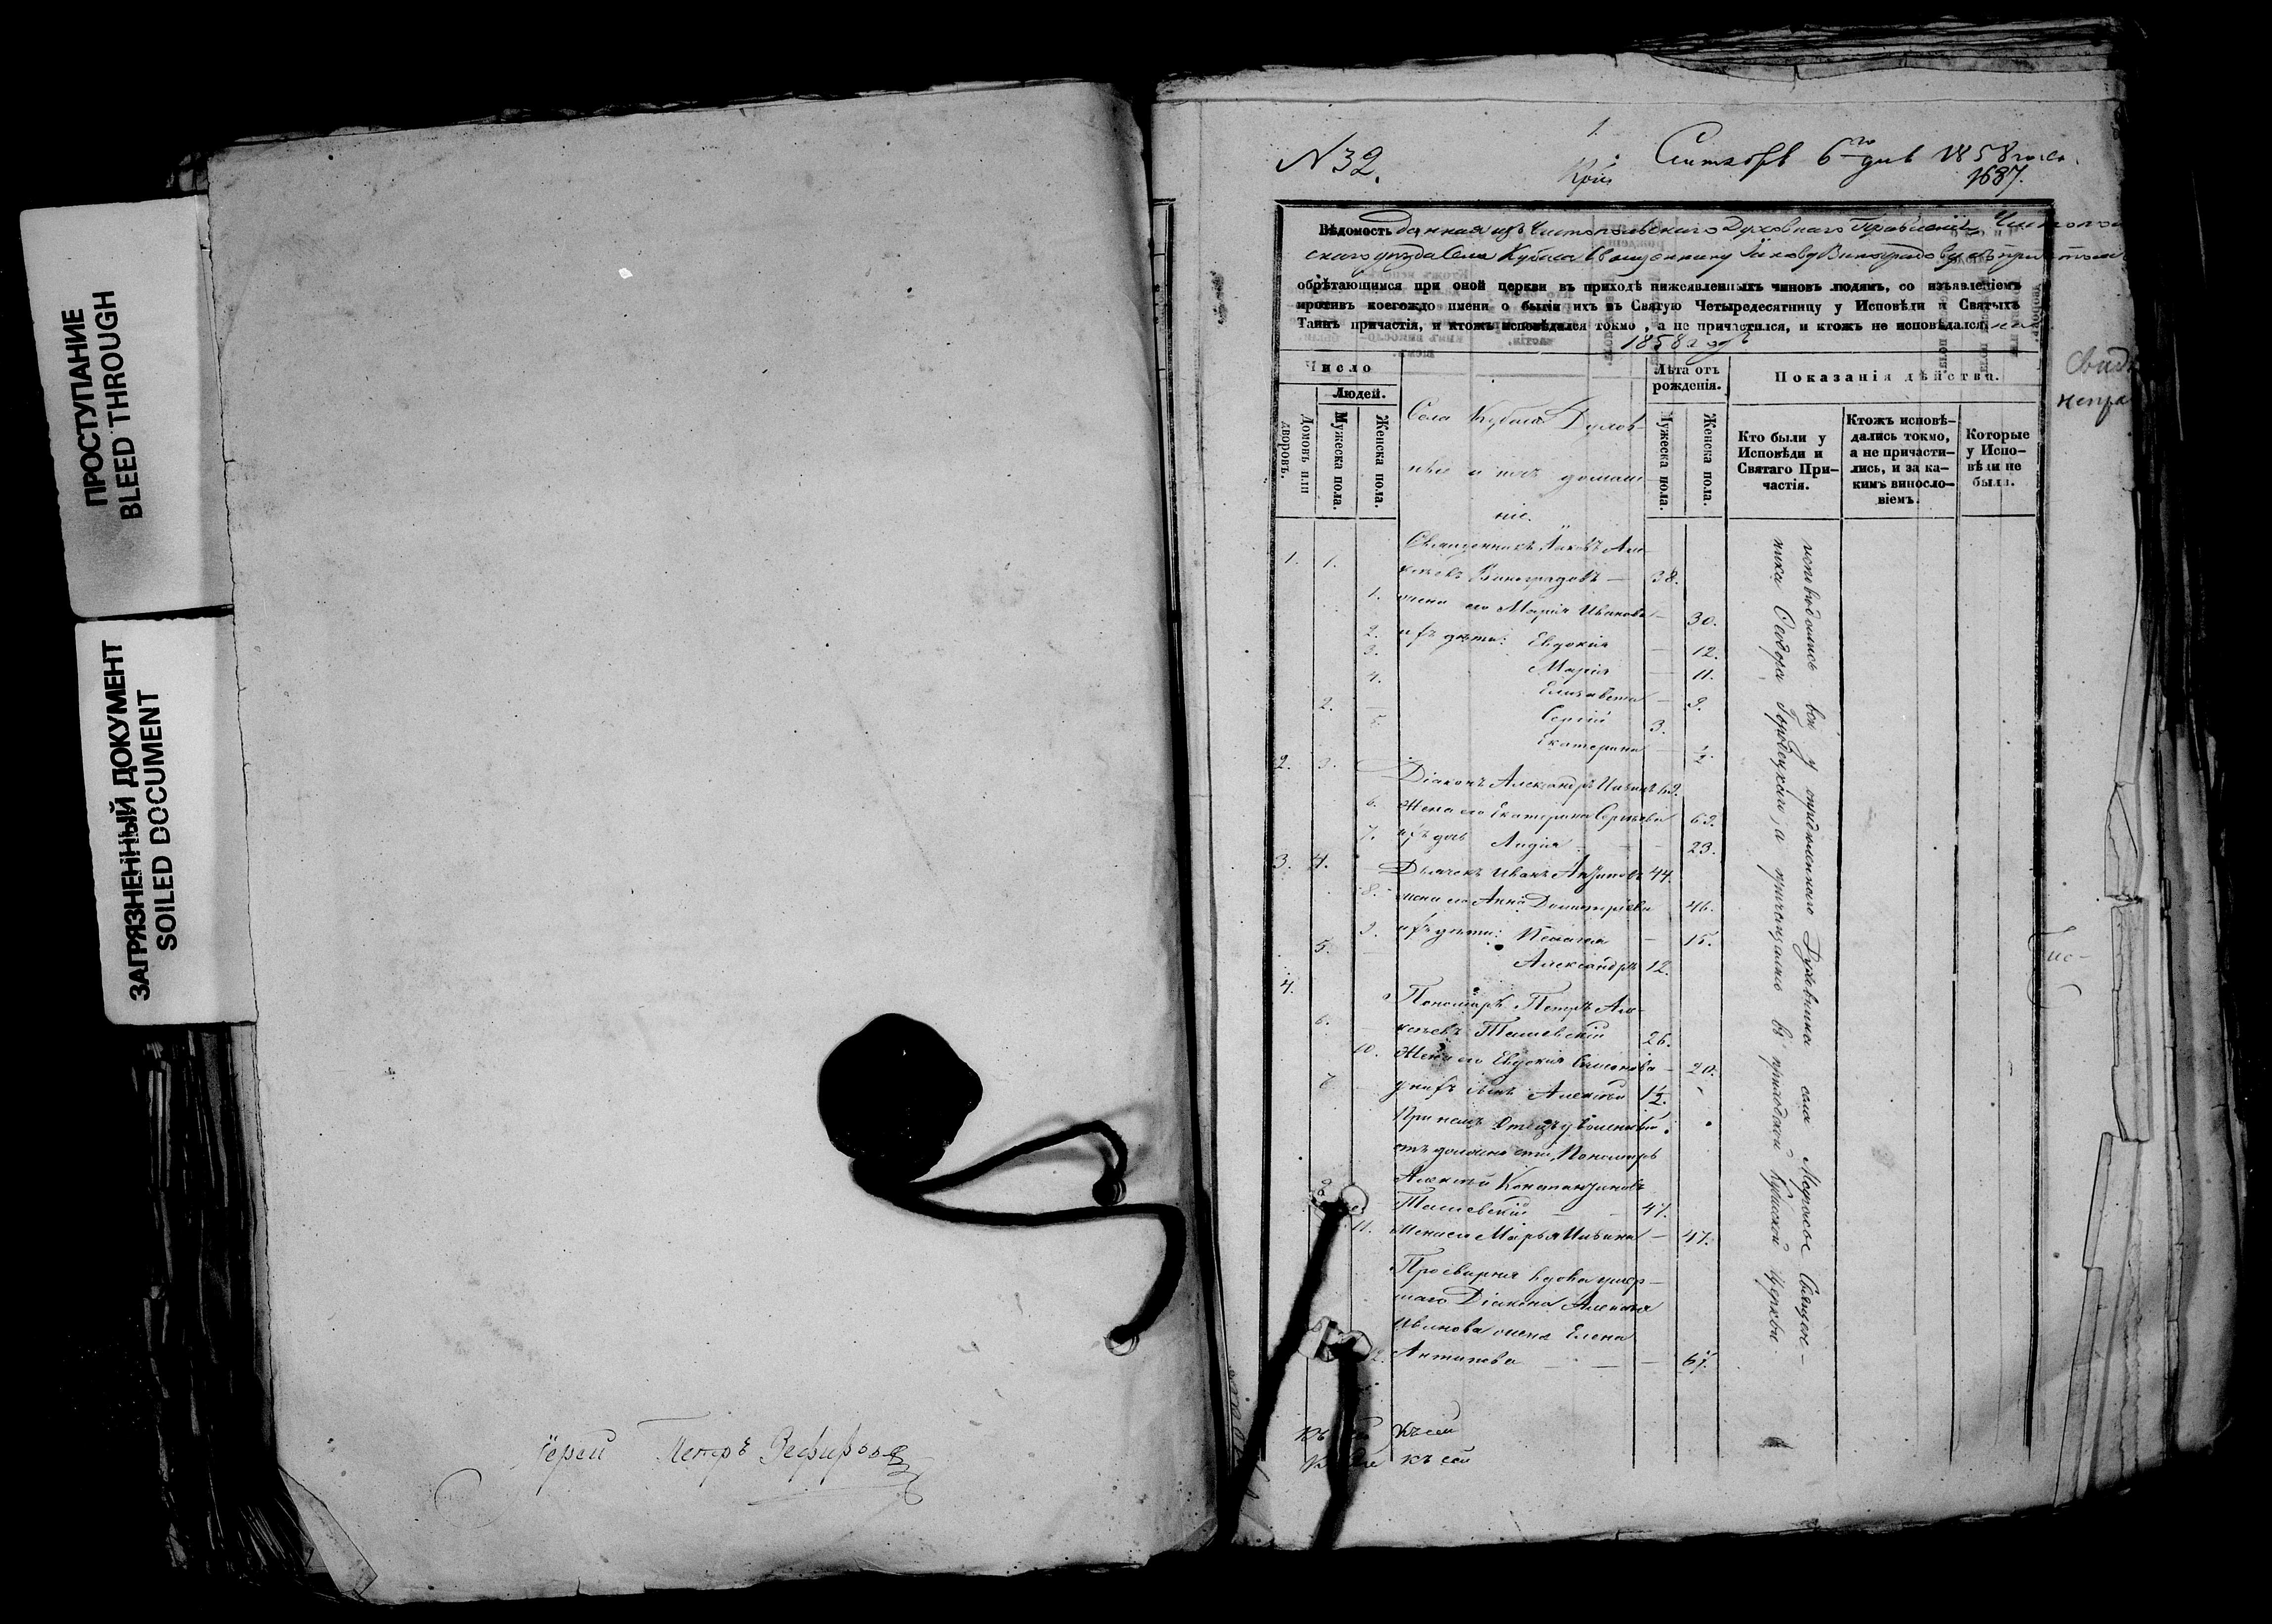 ПРОСТУПАНИЕ
BLEED THROUGH
ЗАГРЯЗНЕННЫЙ ДОКУМЕНТ
SOILED DOCUMENT
Іерей Петръ Зефировъ
N 32.
1.
6го дня 1858 года.
1687.
Вѣдомость данная изъ Чистопольскаго Духовнаго Правленія Чистополь
скаго уѣзда села Кубаса Священнику Іакову Виноградову
обрѣтающимся при оной церкви въ приходѣ нижеявленныхъ чиновъ людямъ, со изъявленіемъ
противъ коегождо имени о бытіи ихъ въ Святую Четыредесятницу у Исповѣди и Святыхъ
Таинъ причастія, и ктожъ исповѣдался токмо, а не причастился, и ктожъ не исповѣдался.
1858 годъ
Число
Людей.
Домовъ или дворовъ.
Мужеска пола.
Женска пола.
Села Кубаса Духов-
ные и ихъ домаш
ніе.
Лѣта отъ рожденія.
Мужеска пола.
Женска пола.
Показанія дѣйства.
Кто были у Исповѣди и Святаго При-
частія.
Ктожъ исповѣ-
дались токмо,
а не причасти-
лись, и за ка-
кимъ винословіемъ.
Которые
у Испо-
вѣди не
были.
1. 1. Священникъ Іаковъ Але-
ксѣевъ Виноградовъ — 38.
1. жена его Марія Иванова — 30.
2. ихъ дѣти: Евдокія — 12.
3. Марія — 11.
4. Елизавета — 9.
2. Сергій 3.
5. Екатерина — 1/2.
2. 3. Діаконъ Александръ Ильинъ 62.
6. Жена его Екатерина Сергѣева 62.
7. ихъ дочь Лидія — 23.
3. 4. Дьячекъ Иванъ 44.
8. жена его Анна Димитріева 46.
9. ихъ дѣти: Пелагея — 15.
5. Александръ 12.
4. Пономарь Петръ Але-
6. ксѣевъ 26.
10. Жена его Евдокія Симонова — 20.
7 у нихъ сынъ Алексѣй 1 1/2.
При немъ отецъ уволенный
отъ должности, Пономарь
Алексѣй Константиновъ
8 47.
11. Жена его Марья Ильина — 47.
Просвирня вдова умер-
шаго Діакона Алексѣя
Иванова жена Елена
12. Антипова — — — 67.
исповѣдались всѣ у опредѣленнаго Духовника села Священ-
ника Ѳеодора Городецкаго, а причащались въ приходской Церкви.
къ сей
къ сей